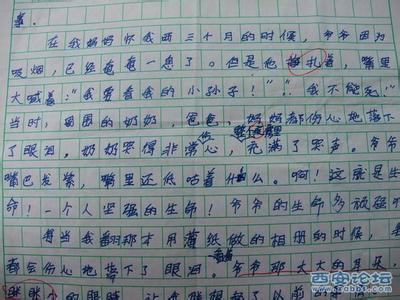 事。
在我妈妈怀我两三个月的时候，爷爷因为
吸烟，已经奄奄一息了。但是他挣扎着，嘴里
大喊着："我要看我的小孙子！""我不能死"
当时，周围的奶奶，爸爸、妈妈都伤心地落下
了眼泪。奶奶哭得非常伤心，充满了哭声。爷爷
嘴巴发紫，嘴里还低咕着什么。啊！这就是生
命！一个人坚强的生命！爷爷的生命多顽强
每当我看那本用薄纸做的相册的时候，
都会伤心地落下了眼泪。爷爷那大大的
眯眯小的眼睛
西安论坛